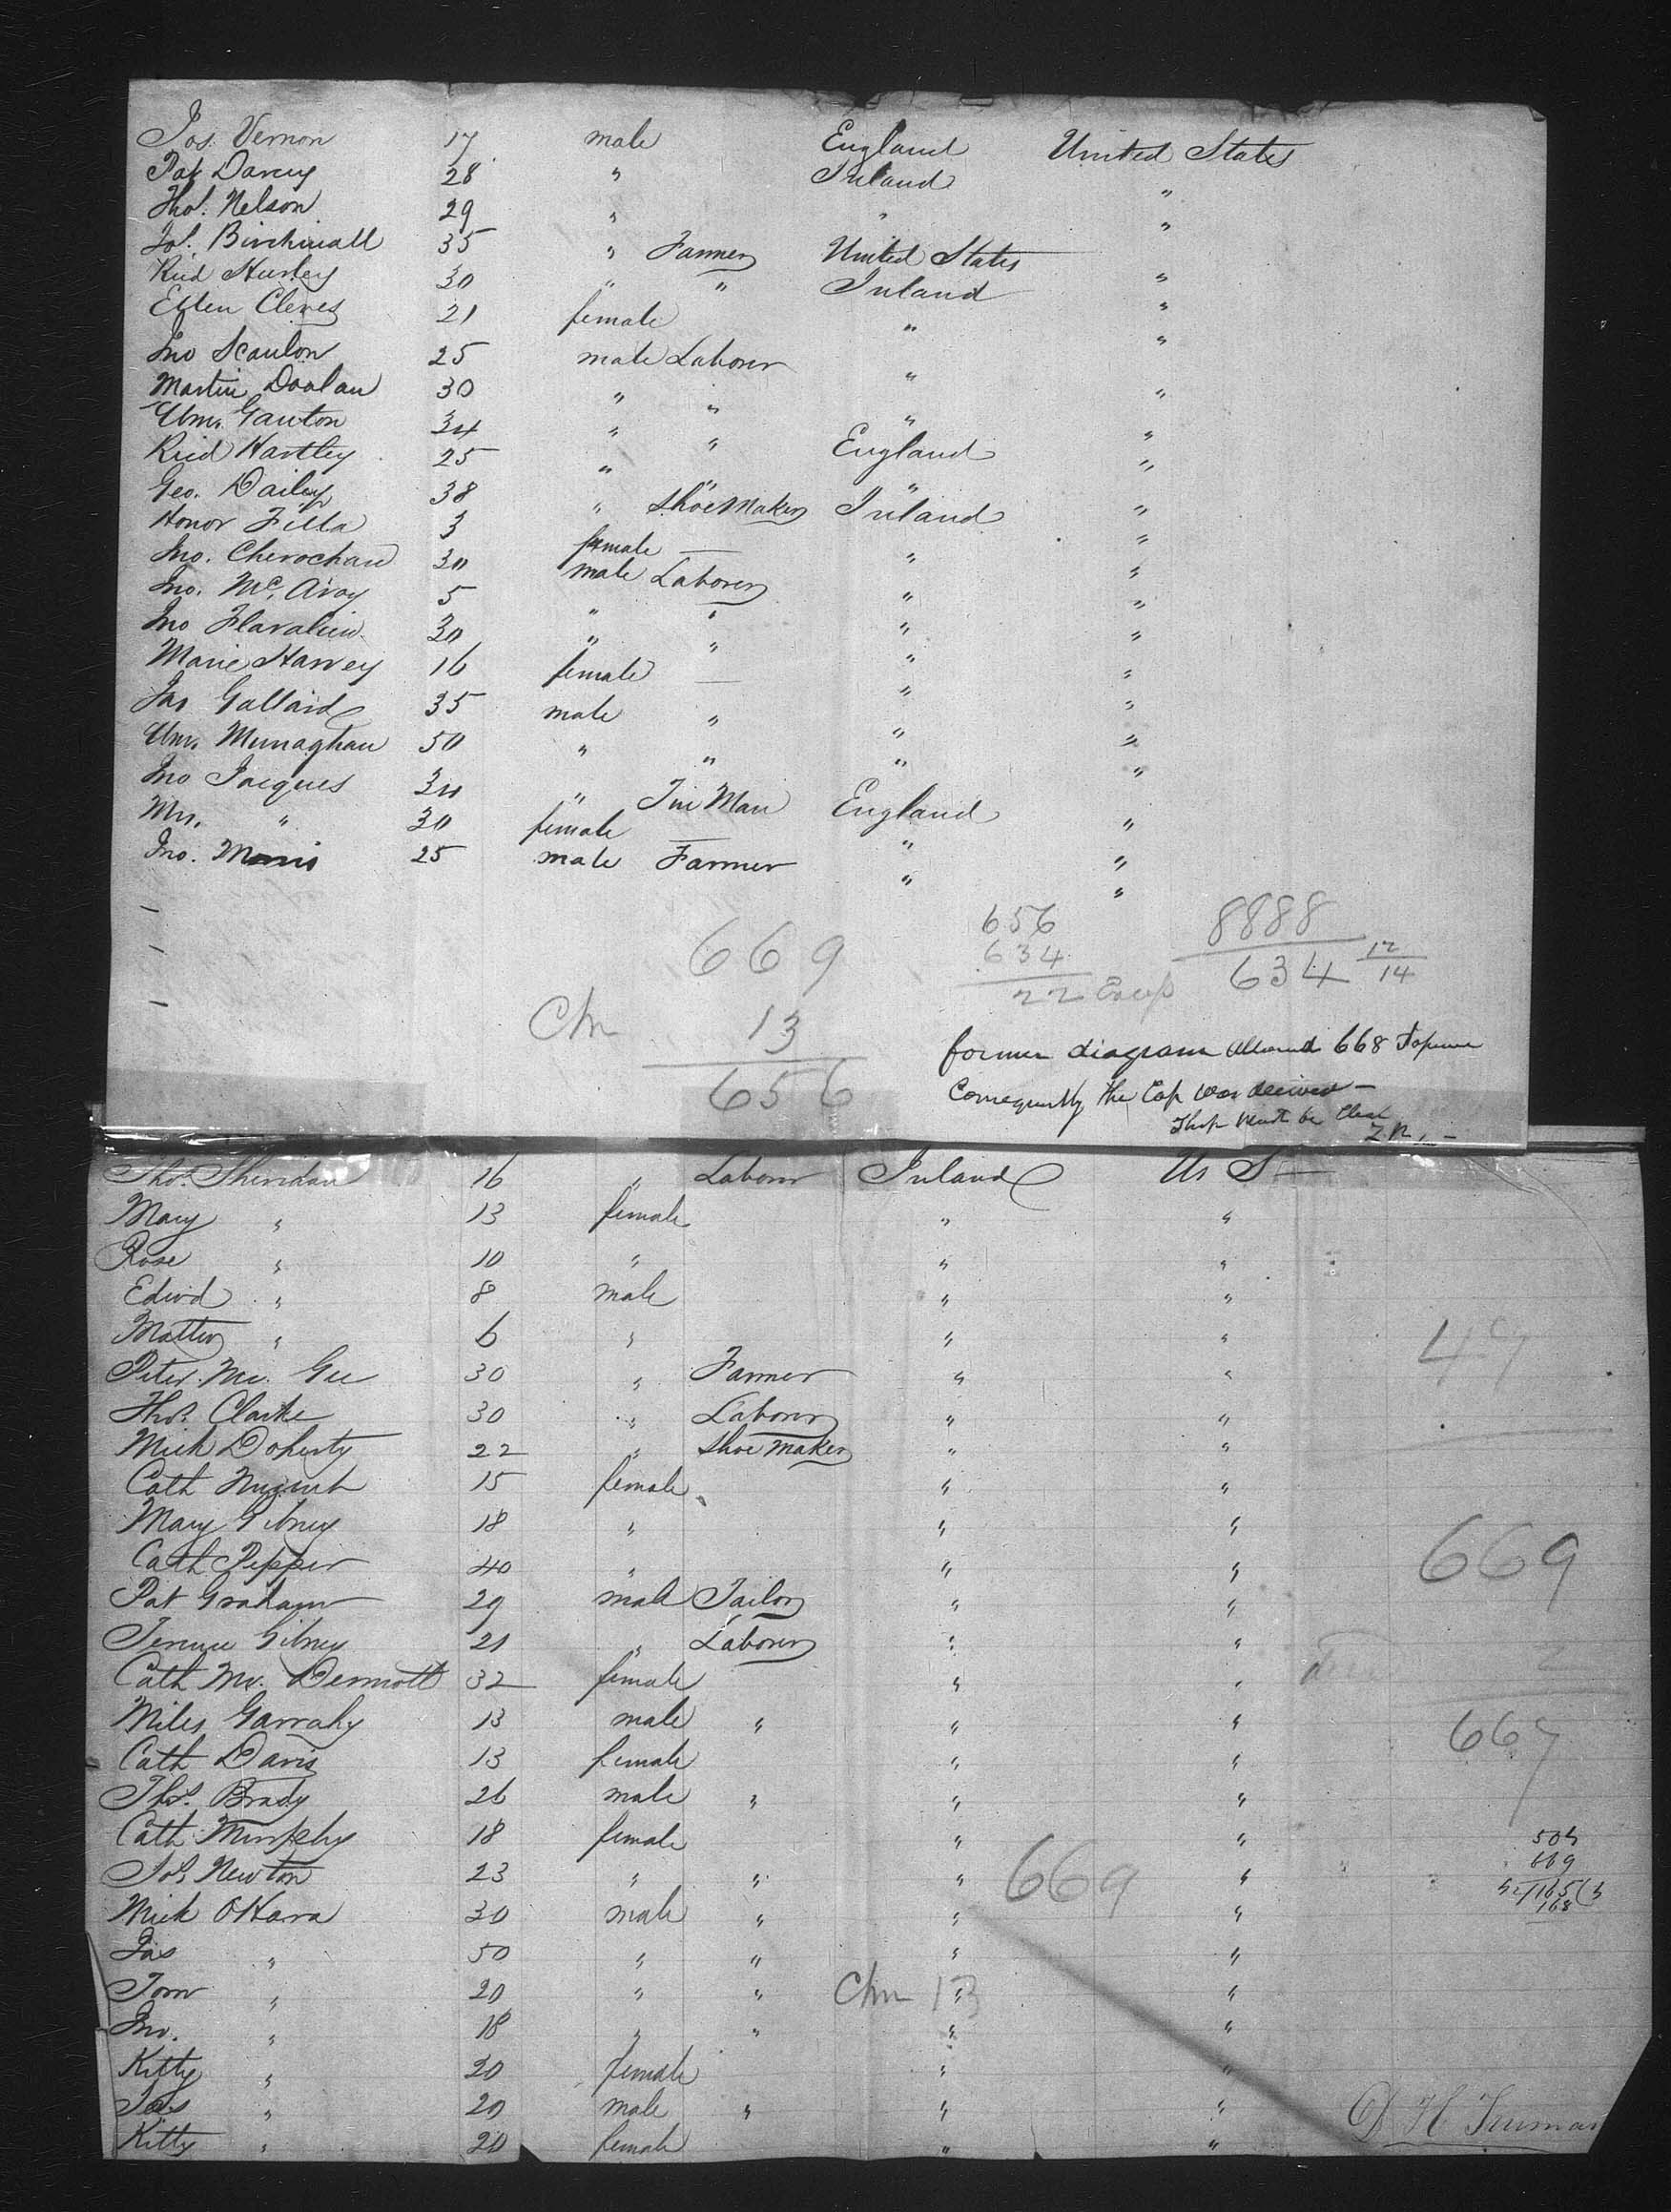 Jas. Vernon 17 male England United States
Pat Darcy 28 " Ireland "
Tho.s Nelson 29 " " "
Jos. Birchinall 35 " Farmer United States "
Ricd Hurley 30 " " Ireland "
Ellen Cleves 21 female " "
Jno Scanlon 25 male Laborer " "
Martin Doolan 30 " " " "
Wm. Ganton 34 " " England "
Ricd Hartley 25 " " " "
Geo. Dailey 38 " Shoe Maker Ireland "
Honor Filla 3 female — " "
Jno. Cherochan 30 male Laborer " "
Jno. Mc. Avoy 5 " " " "
Jno Flavahin 30 " " " "
Marie Harvey 16 female — " "
Jas Gallaid 35 male " " "
Wm. Munaghan 50 " " " "
Jno Jacques 34 " Tin Man England "
Mrs. " 30 female " "
Jno. Morris 25 male Farmer " "
669
Chn 13
656
656
634
22
8888
634 12/14
former diagram allowed 668
Consequently the
Must be
Thos. Sheridan 16 " Laborer Ireland U S
Mary " 13 female " "
Rose " 10 " " "
Edwd " 8 male " "
Mattw " 6 " " "
Peter Mc. Gee 30 " Farmer " "
Thos. Clarke 30 " Laborer " "
Mich Doherty 22 " Shoe Maker " "
Cath Nugent 15 female " "
Mary Gibney 18 " " "
Cath Pepper 40 " " "
Pat Graham 29 male Tailor " "
Terence Gibney 21 " Laborer " "
Cath Mc. Dermott 32 female " "
Miles Garrahy 13 male " " "
Cath Davis 13 female " "
Thos. Brady 26 male " " "
Cath Murphy 18 female " "
Jos Newton 23 " " " "
Mich OHara 30 male " " "
Jas " 50 " " " "
Tom " 20 " " " "
Jno. " 18 " " " "
Kitty " 20 female " "
Jas " 20 male " " "
Kitty " 20 female " "
669
Chn 13
47
669
2
667
504
669
165
168
D H Truman